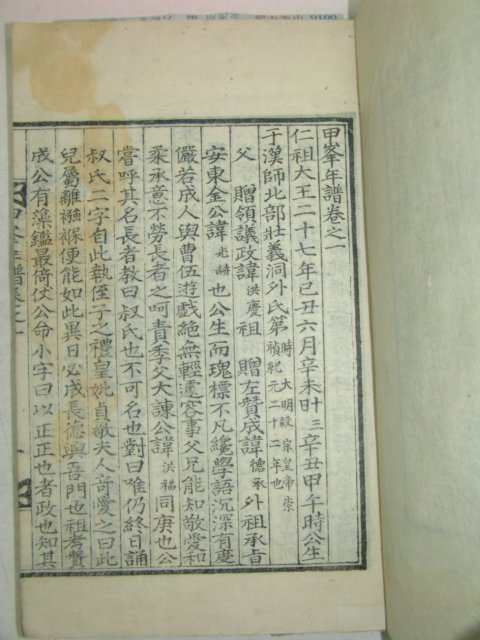 甲峯年譜卷之一
仁祖大王二十七年己丑六月辛未廿三辛丑甲午時公生
于漢師北部壯義洞外氏第時大明毅宗皇帝崇禎紀元二十二年也
父贈領議政諱洪慶祖贈左贊成諱德承外祖承旨
安東金公諱光赫也公生而瑰標不凡纔學語沉深有度
儼若成人與曹伍遊戲絶無輕遽容事父兄能知敬愛和
柔承意不勞長者之呵責季父大諫公諱洪福同庚也公
嘗呼其名長者敎曰叔氏也不可名也對曰唯仍終日誦
叔氏二字自此執侄子之禮皇妣貞敬夫人奇愛之曰此
兒屬離襁褓便能如此異日必成長德興吾門也祖考贊
成公有藻鑑最倚仗公命小字曰以正正也者政也知其
年譜卷之一